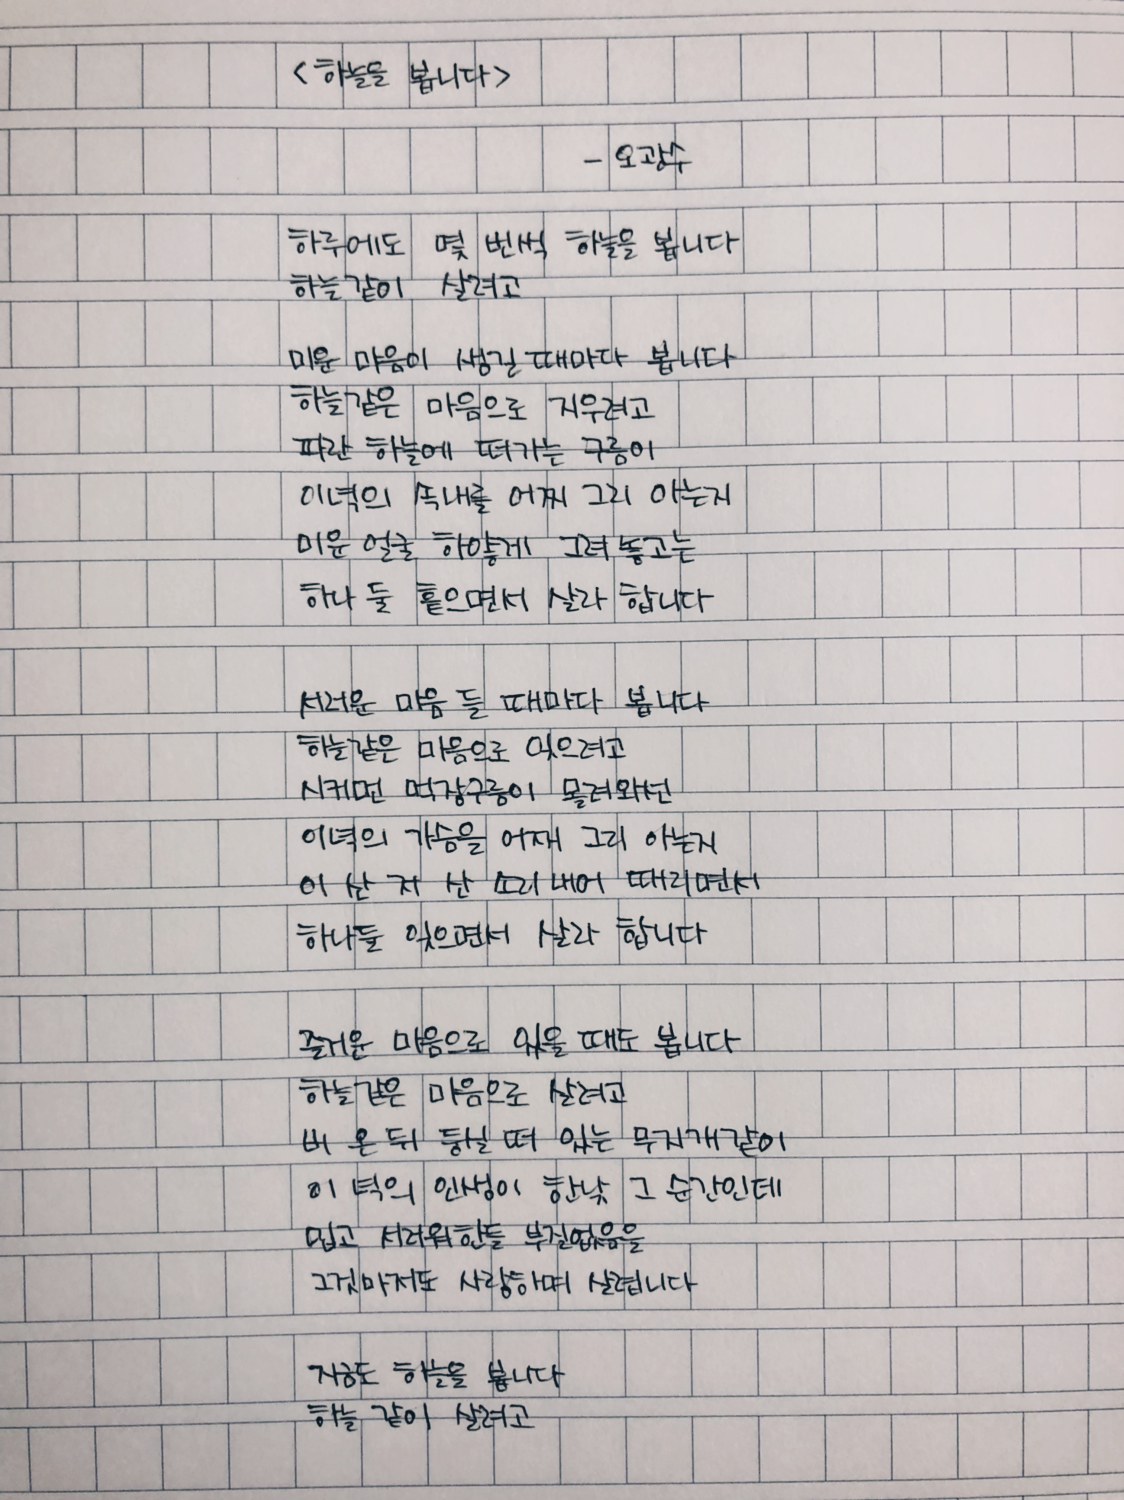 <하늘을 봅니다>
- 오광수
하루에도 몇 번씩 하늘을 봅니다
하늘같이 살려고
미운 마음이 생길 때마다 봅니다
하늘같은 마음으로 지우려고
파란 하늘에 떠가는 구름이
이녁의 속내를 어찌 그리 아는지
미운 얼굴 하얗게 그려 놓고는
하나 둘 흩으면서 살라 합니다
서러운 마음 들 때마다 봅니다
하늘같은 마음으로 잊으려고
시커먼 먹장구름이 몰려와선
이녁의 가슴을 어째 그리 아는지
이 산 저 산 소리내어 때리면서
하나둘 잊으면서 살라 합니다
즐거운 마음으로 있을 때도 봅니다
하늘같은 마음으로 살려고
비 온 뒤 둥실 떠 있는 무지개같이
이 녁의 인생이 한낮 그 순간인데
밉고 서러워한들 부질없음을
그것마저도 사랑하며 살렵니다
지금도 하늘을 봅니다
하늘 같이 살려고